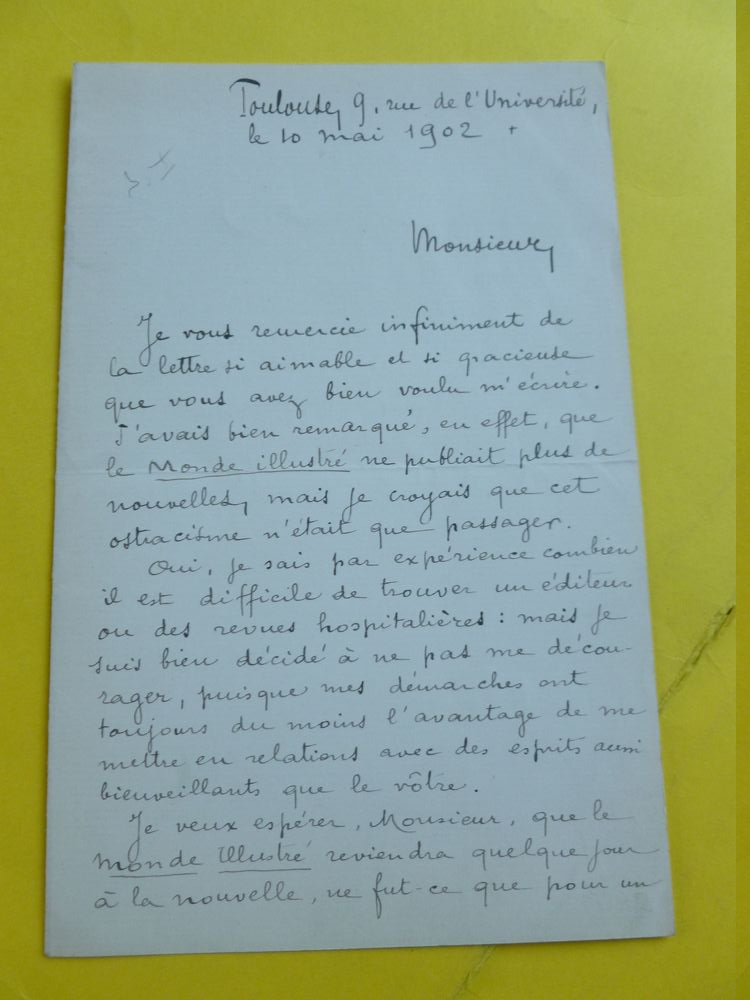 Toulouse, 9, rue de l'Université,
le 10 mai 1902
Monsieur,
Je vous remercie infiniment de
la lettre si aimable et si gracieuse
que vous avez bien voulu m'écrire.
J'avais bien remarqué, en effet, que
le Monde illustré ne publiait plus de
nouvelles, mais je croyais que cet
ostracisme n'était que passager.
Oui, je sais par expérience combien
il est difficile de trouver un éditeur
ou des revues hospitalières : mais je
suis bien décidé à ne pas me décou-
rager, puisque mes démarches ont
toujours du moins l'avantage de me
mettre en relations avec des esprits aussi
bienveillants que le vôtre.
Je veux espérer, Monsieur, que le
Monde Illustré reviendra quelque jour
à la nouvelle, ne fut-ce que pour un